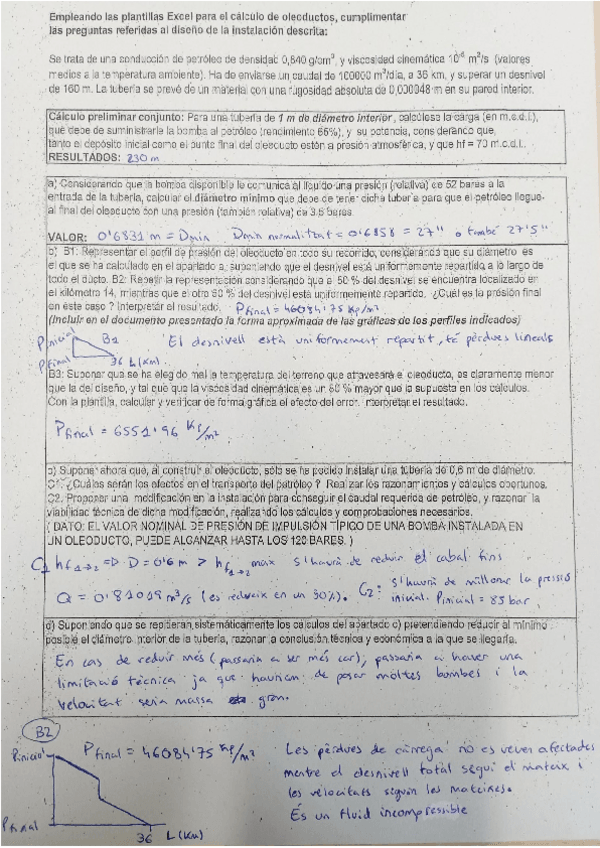 Empleando las plantillas Excel para el cálculo de oleoductos, cumplimentar
las preguntas referidas al diseño de la instalación descrita:
Se trata de una conducción de petróleo de densidad 0,840 g/cm³, y viscosidad cinemática 10⁻⁶ m²/s (valores
medios a la temperatura ambiente). Ha de enviarse un caudal de 100000 m³/día, a 36 km, y superar un desnivel
de 160 m. La tubería se prevé de un material con una rugosidad absoluta de 0,000048 m en su pared interior.
Cálculo preliminar conjunto: Para una tubería de 1 m de diámetro interior, calcúlese la carga (en m.c.d.l.),
que debe de suministrarle la bomba al petróleo (rendimiento 65%), y su potencia, considerando que
tanto el depósito inicial como el punto final del oleoducto están a presión atmosférica, y que hf = 70 m.c.d.l.
RESULTADOS: 230 m
a) Considerando que la bomba disponible le comunica al líquido una presión (relativa) de 52 bares a la
entrada de la tubería, calcular el diámetro mínimo que debe de tener dicha tubería para que el petróleo llegue
al final del oleoducto con una presión (también relativa) de 3,5 bares.
VALOR: 0'6831 m = Dmin Dmin normalitzat = 0'6858 = 27" o també 27'5"
b) B1: Representar el perfil de presión del oleoducto en todo su recorrido, considerando que su diámetro es
el que se ha calculado en el apartado a, suponiendo que el desnivel está uniformemente repartido a lo largo de
todo el ducto. B2: Repetir la representación considerando que el 50 % del desnivel se encuentra localizado en
el kilómetro 14, mientras que el otro 50 % del desnivel está uniformemente repartido. ¿Cuál es la presión final
en este caso ? Interpretar el resultado. Pfinal = 46084'75 Kp/m²
(Incluir en el documento presentado la forma aproximada de las gráficas de los perfiles indicados)
Pinicio B1 El desnivell està uniformement repartit, té pèrdues lineals
Pfinal 36 L(Km)
B3: Suponer que se ha elegido mal la temperatura del terreno que atravesará el oleoducto, es claramente menor
que la del diseño, y tal que la viscosidad cinemática es un 50 % mayor que la supuesta en los cálculos.
Con la plantilla, calcular y verificar de forma gráfica el efecto del error. Interpretar el resultado.
Pfinal = 6551'96 Kg/m²
c) Suponer ahora que, al construir el oleoducto, sólo se ha podido instalar una tubería de 0,6 m de diámetro.
C1. ¿Cuáles serán los efectos en el transporte del petróleo ? Realizar los razonamientos y cálculos oportunos.
C2. Proponer una modificación en la instalación para conseguir el caudal requerido de petróleo, y razonar la
viabilidad técnica de dicha modificación, realizando los cálculos y comprobaciones necesarios.
( DATO: EL VALOR NOMINAL DE PRESIÓN DE IMPULSIÓN TÍPICO DE UNA BOMBA INSTALADA EN
UN OLEODUCTO, PUEDE ALCANZAR HASTA LOS 120 BARES. )
C1 hf1→2 => D = 0'6 m > hf1→2 max s'haurà de reduir el cabal fins
Q = 0'81019 m³/s (es redueix en un 30%). C2: s'haurà de millorar la pressió
inicial. Pinicial = 85 bar
d) Suponiendo que se repitieran sistemáticamente los cálculos del apartado c) pretendiendo reducir al mínimo
posible el diámetro interior de la tubería, razonar la conclusión técnica y económica a la que se llegaría.
En cas de reduir més (passaria a ser més car), passaria a haver una
limitació tècnica ja que hauríem de posar moltes bombes i la
velocitat seria massa gran.
B2
Pinicio Pfinal = 46084'75 Kp/m² Les pèrdues de càrrega no es veuen afectades
mentre el desnivell total segui el mateix i
les velocitats seguin les mateixes.
És un fluid incompressible
Pfinal
36 L(Km)